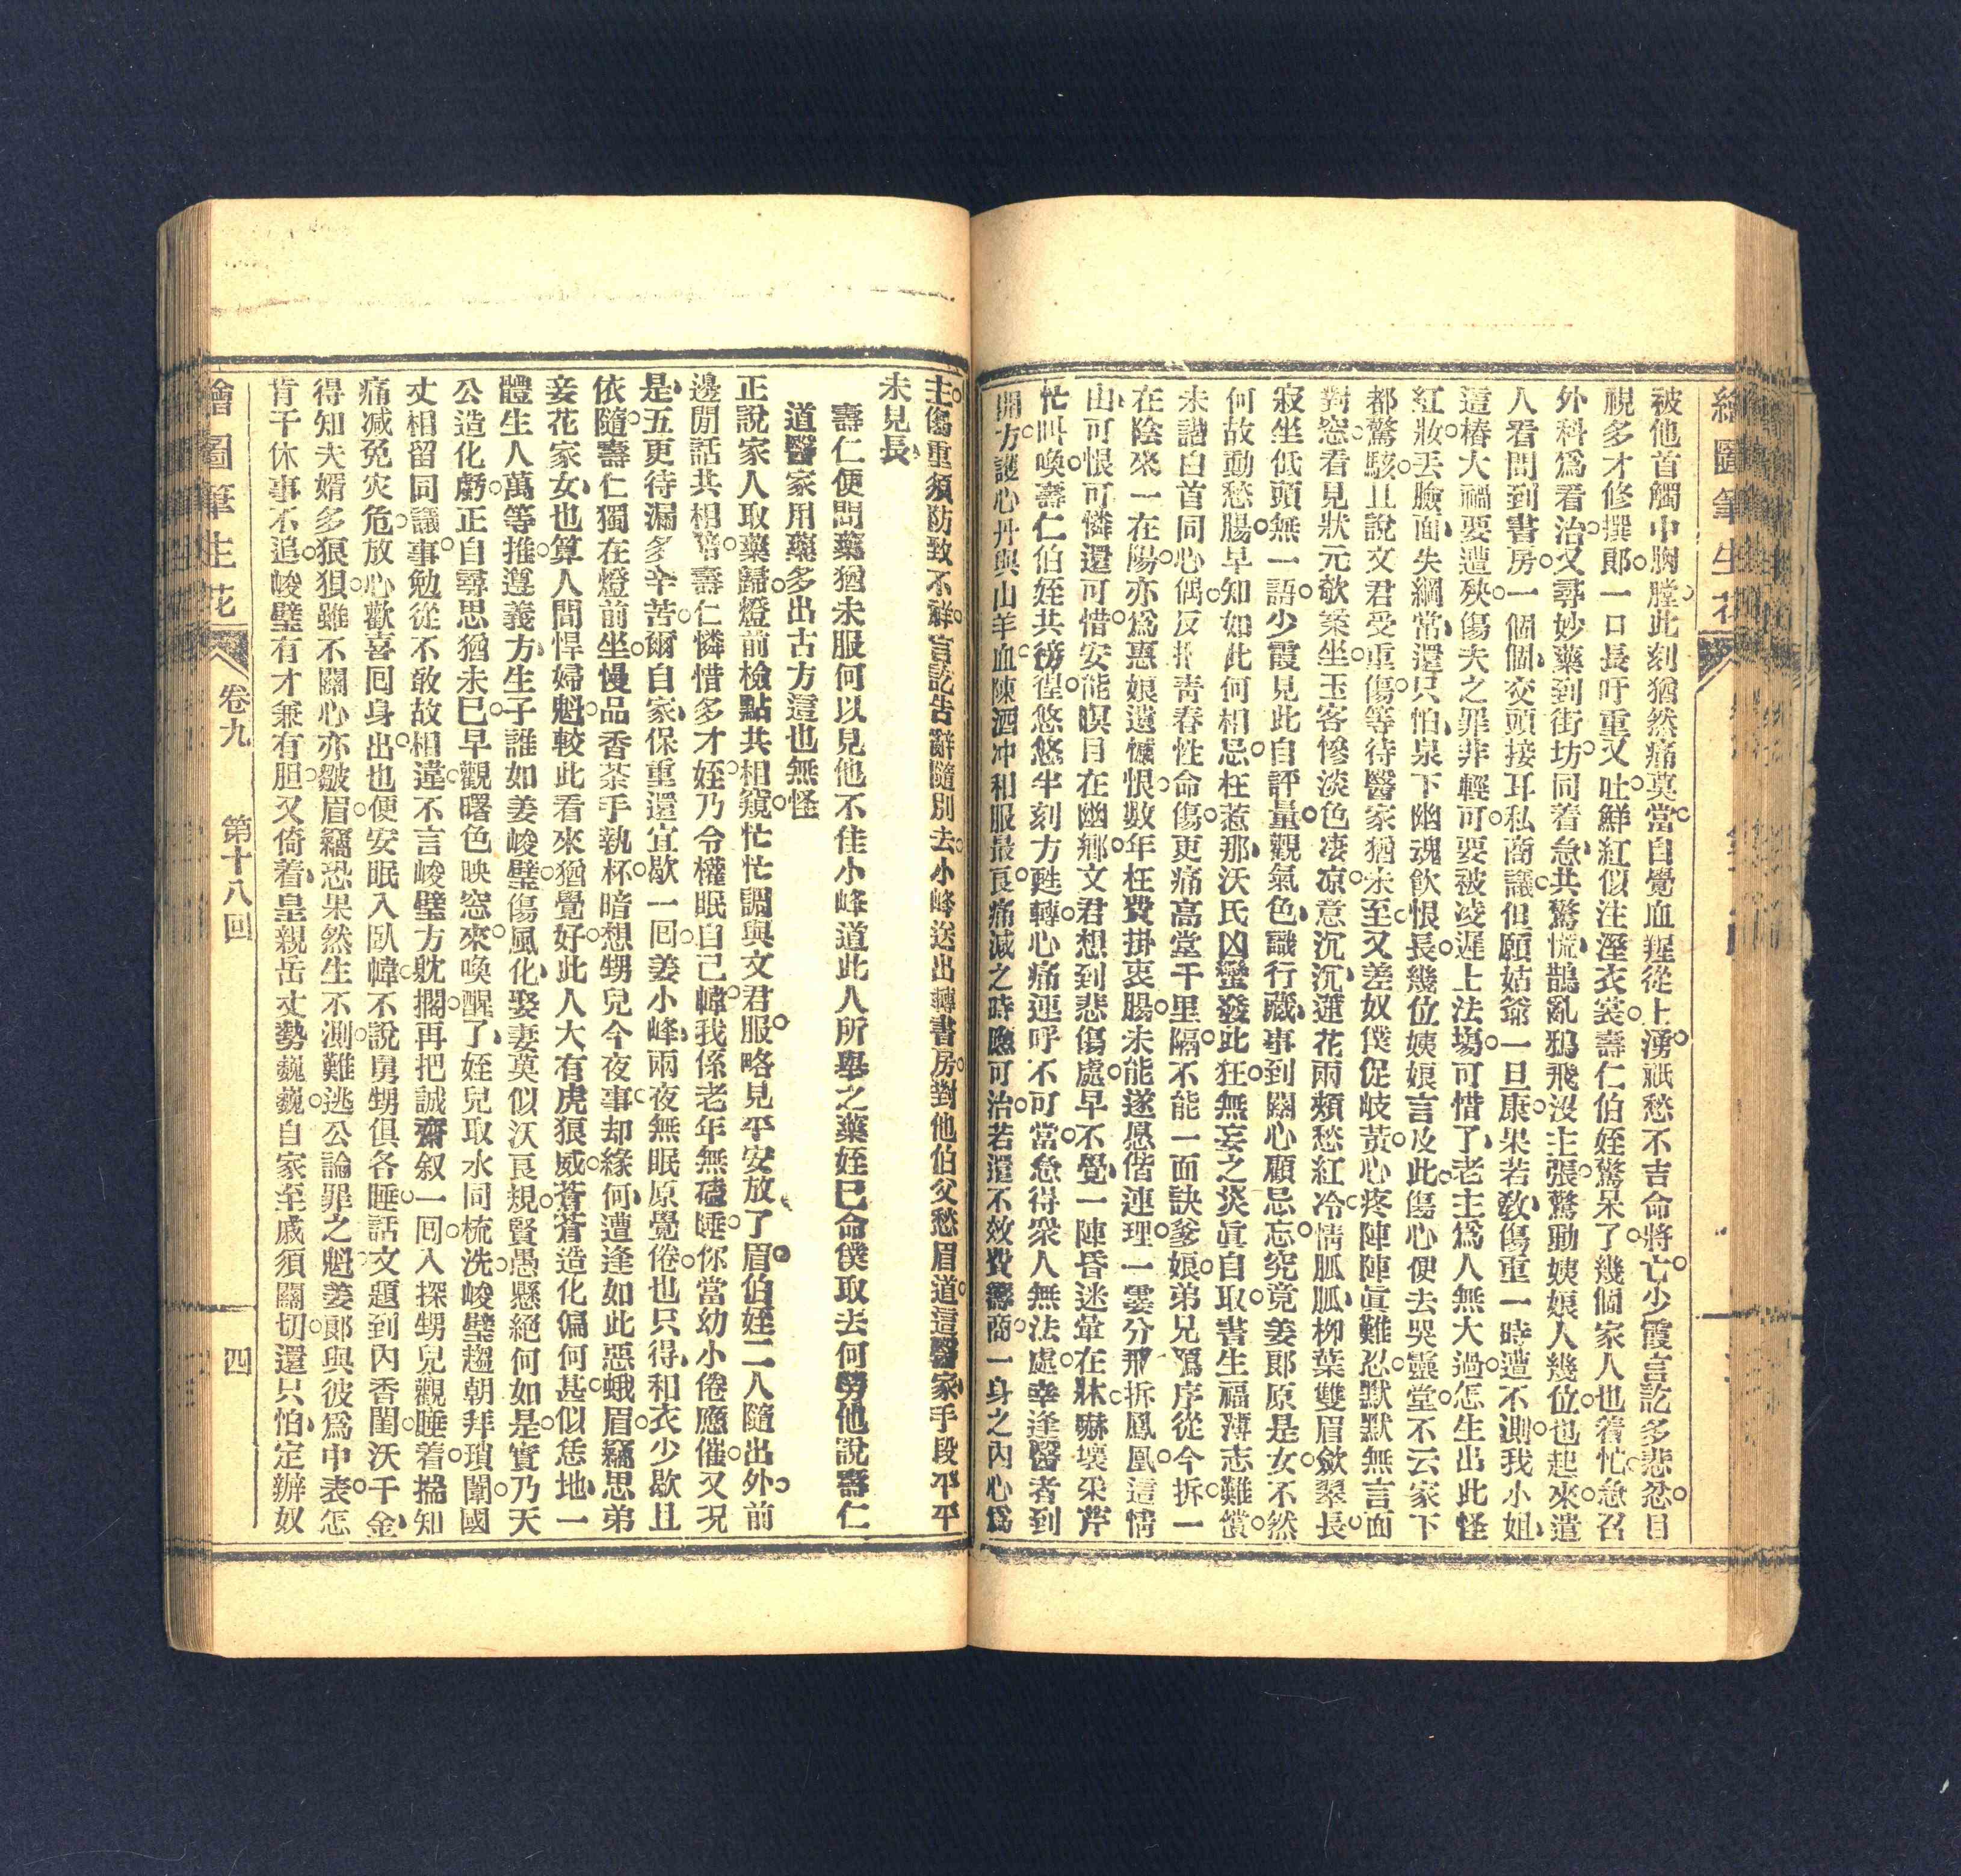 繪圖筆生花
被他首觸中胸膛此刻猶然痛莫當自覺血腥從上湧祇愁不吉命將亡少霞言訖多悲忿目
視多才修撰郎一口長吁重又吐鮮紅似注溼衣裳壽仁伯姪驚呆了幾個家人也着忙急召
外科爲看治又尋妙藥到街坊同着急共驚慌鵲亂鴉飛沒主張驚動姨娘人幾位也起來遣
人看問到書房一個個交頭接耳私商議但願姑爺一旦康果若敎傷重一時遭不測我小姐
這樁大禍要遭殃傷夫之罪非輕可要被凌遲上法塲可惜了老主爲人無大過怎生出此怪
紅妝丟臉面失綱常還只怕泉下幽魂飮恨長幾位姨娘言及此傷心便去哭靈堂不云家下
都驚駭且說文君受重傷等待醫家猶未至又差奴僕促岐黃心疼陣陣眞難忍默默無言面
對窓看見狀元欹枲坐玉客慘淡色凄凉意沉沉蓮花雨頰愁紅冷情胍胍柳葉雙眉斂翠長
寂坐低頭無一語少霞見此自評量觀氣色識行藏事到關心顧忌忘究竟姜郎原是女不然
何故動愁腸早知如此何相忌枉惹那沃氏凶蠻發此狂無妄之炎眞自取書生福薄志難償
未諧白首同心偶反青春性命傷更痛高堂千里隔不能一面訣爹娘弟兄鴈序從今拆一
在陰來一在陽亦爲惠娘遺慽恨數年枉費掛衷腸未能遂愿偕連理一霎分飛拆鳳凰這情
山可恨可憐還可惜安能暝目在幽鄉文君想到悲傷處早不覺一陣昏迷暈在牀嚇壞采芹
忙叫喚壽仁伯姪共徬徨悠悠半刻方甦轉心痛連呼不可當急得衆人無法處幸逢醫者到
開方護心丹與山羊血陳酒冲和服最良痛減之時應可治若還不效費籌商一身之內心爲
主傷重須防致不祥言訖告辭隨別去小峰送出轉書房對他伯父愁眉道這醫家手段平平
未見長
壽仁便問藥猶未服何以見他不佳小峰道此人所舉之藥姪已命僕取去何勞他說壽仁
道醫家用藥多出古方這也無怪
正說家人取藥歸燈前檢點共相窺忙忙調與文君服略見平安放了眉伯姪二人隨出外前
邊閒話共相陪壽仁憐惜多才姪乃令權眠自己幃我係老年無磕睡你當幼小倦應催又况
是五更待漏多辛苦爾自家保重還宜歇一回姜小峰兩夜無眠原覺倦也只得和衣少歇且
依隨壽仁獨在燈前坐慢品香茶手執杯暗想甥兒今夜事却緣何遭逢如此惡蛾眉竊思弟
妾花家女也算人間悍婦魁較此看來猶覺好此人大有虎狼威蒼蒼造化偏何甚似恁地一
體生人萬等推遵義方生子誰如姜峻璧傷風化娶妻莫似沃良規賢愚懸絕何如是實乃天
公造化虧正自尋思猶未已早觀曙色映窓來喚醒了姪兒取水同梳洗峻璧趨朝拜瑣闈國
丈相留同議事勉從不敢故相違不言峻璧方躭擱再把誠齋叙一回入探甥兒觀睡着揣知
痛减免灾危放心歡喜回身出也便安眠入臥幃不說舅甥俱各睡話文題到內香閨沃千金
得知夫婿多狼狽雖不關心亦皺眉竊恐果然生不測難逃公論罪之魁姜郎與彼爲中表怎
肯干休事不追峻璧有才兼有胆又倚着皇親岳丈勢巍巍自家至戚須關切還只怕定辦奴
繪圖筆生花 卷九 第十八回 四